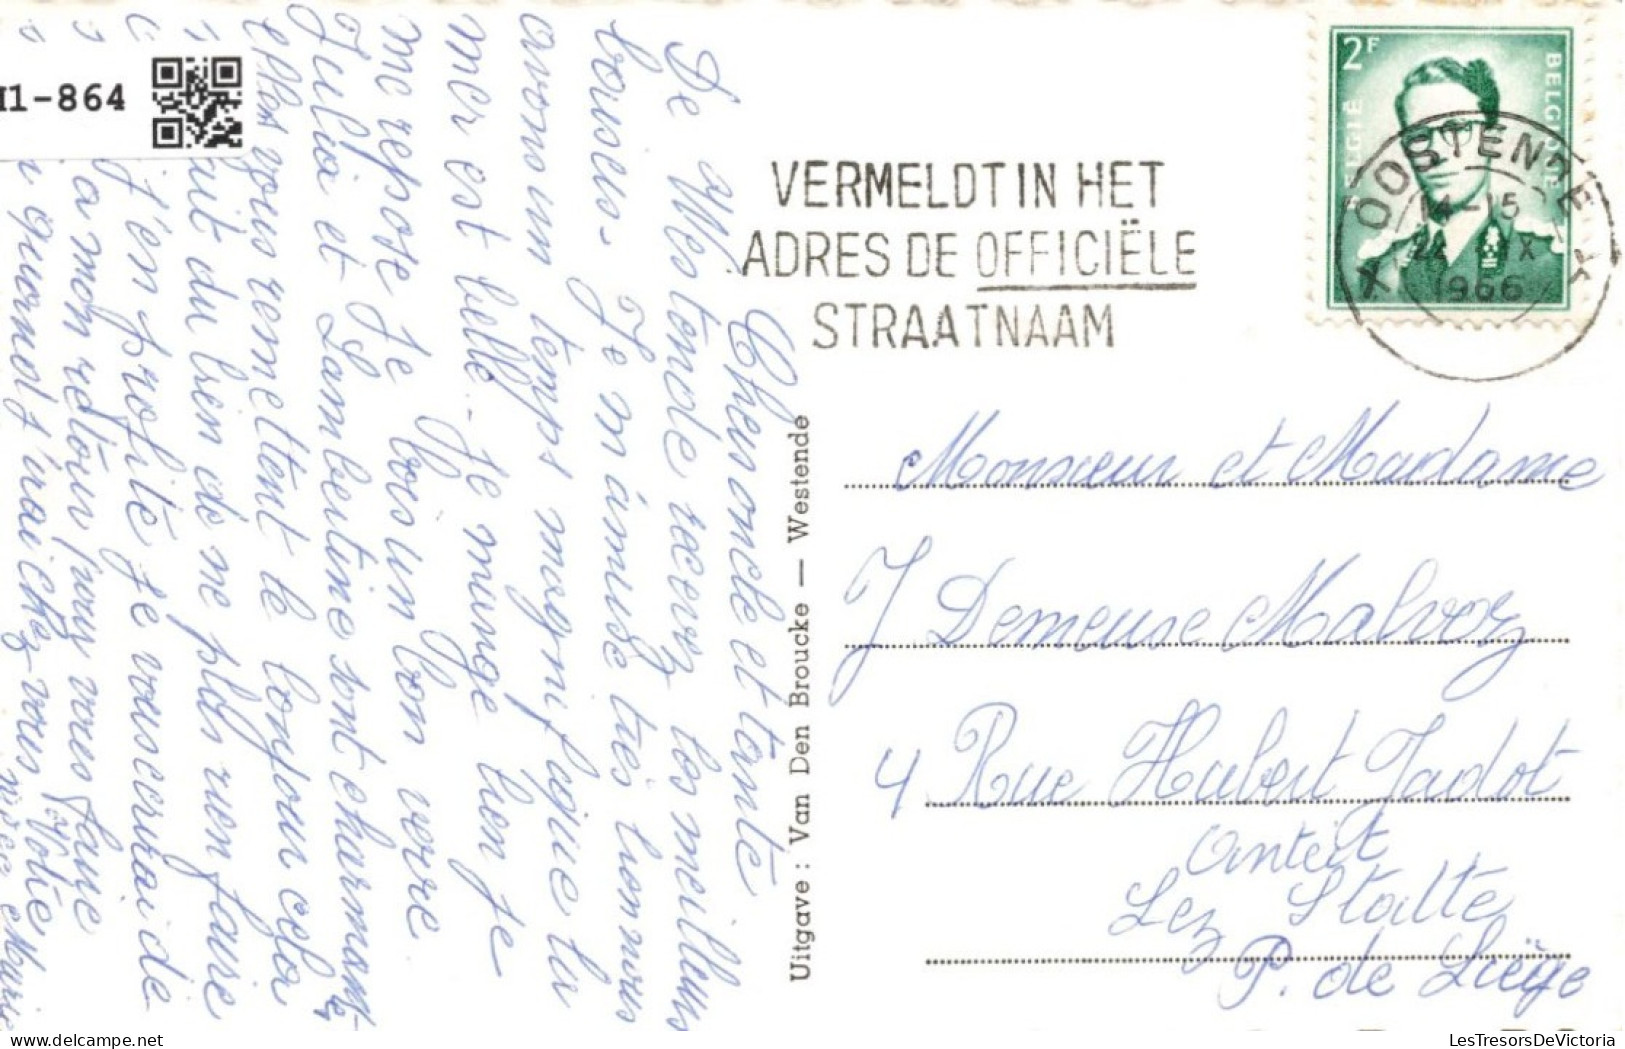 I1-864
2F
BELGIE
BELGIQUE
OOSTENDE
14-15
1966
VERMELDT IN HET
ADRES DE OFFICIËLE
STRAATNAAM
Uitgave: Van Den Broucke — Westende
Cher oncle et tante
De Westende recevez les meilleurs
bouses. Je m'amuse très bien nous
avons un temps magnifique la
mer est belle - Je mange bien je
me repose Je bois un bon verre
Julia et Lambertine sont charmantes
elles vous remettent le bonjour cela
fait du bien de ne plus rien faire
j'en profite je vous écrirai de
à mon retour pour vous faire
quand j'irai chez vous Votre
nièce Marie
Monsieur et Madame
J Demeuse Malvoz
4 Rue Hubert Jadot
Antheit
Lez Statte
P. de Liège
LesTresorsDeVictoria